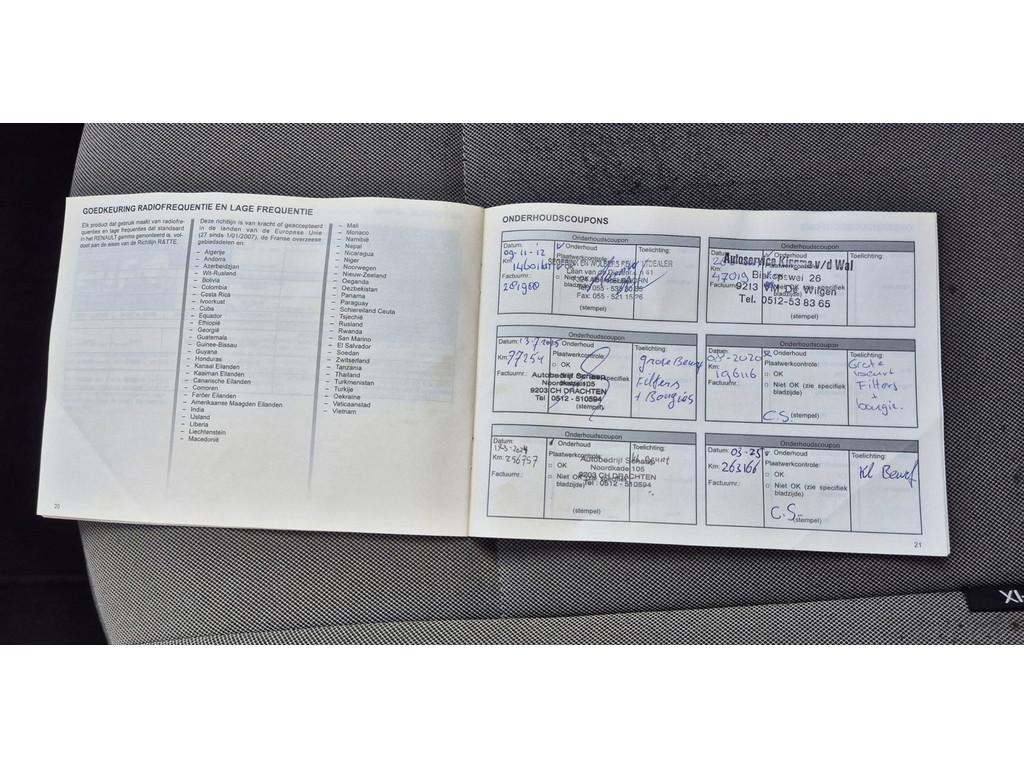 GOEDKEURING RADIOFREQUENTIE EN LAGE FREQUENTIE
Elk product dat gebruik maakt van radiofre-
quenties en lage frequenties dat standaard
in het RENAULT gamma gemonteerd is, vol-
doet aan de eisen van de Richtlijn R&TTE.
Deze richtlijn is van kracht of geaccepteerd
in de landen van de Europese Unie
(27 sinds 1/01/2007), de Franse overzeese
gebiedsdelen en:
– Algerije
– Andorra
– Azerbeidzjan
– Wit-Rusland
– Bolivia
– Colombia
– Costa Rica
– Ivoorkust
– Cuba
– Equador
– Ethiopië
– Georgië
– Guatemala
– Guinee-Bissau
– Guyana
– Honduras
– Kanaal Eilanden
– Kaaiman Eilanden
– Canarische Eilanden
– Comoren
– Faröer Eilanden
– Amerikaanse Maagden Eilanden
– India
– IJsland
– Liberia
– Liechtenstein
– Macedonië
– Mali
– Monaco
– Namibië
– Nepal
– Nicaragua
– Niger
– Noorwegen
– Nieuw-Zeeland
– Oeganda
– Oezbekistan
– Panama
– Paraguay
– Schiereiland Ceuta
– Tsjechië
– Rusland
– Rwanda
– San Marino
– El Salvador
– Soedan
– Zwitserland
– Tanzania
– Thailand
– Turkmenistan
– Turkije
– Oekraïne
– Vaticaanstad
– Vietnam
20
ONDERHOUDSCOUPONS
Onderhoudscoupon
Datum:
09-11-12
Km:
Factuurnr.:
Onderhoud
OK
Toelichting:
Fax: 055 - 521 15 76
(stempel)
Onderhoudscoupon
Autoservice Kingma v/d Wal
Km:
47019
Factuurnr.:
9213 VM De Wilgen
Tel. 0512-53 83 65
(stempel)
Onderhoudscoupon
Datum:
Km:
77254
Factuurnr.:
Onderhoud
Plaatwerkcontrole:
OK
Autobedrijf Schaap
Noordkade 105
9203 CH DRACHTEN
Tel 0512 - 510594
(stempel)
Toelichting:
grote Beurt
Filters
+ Bougies
Onderhoudscoupon
Km:
196116
Factuurnr.:
Onderhoud
Plaatwerkcontrole:
OK
Niet OK (zie specifiek
bladzijde)
C.S.
(stempel)
Toelichting:
Grote
beurt
Filters
+
bougie.
Onderhoudscoupon
Datum:
Km:
256757
Factuurnr.:
Onderhoud
Plaatwerkcontrole:
OK
Niet OK (zie specifiek
bladzijde)
Autobedrijf Schaap
Noordkade 105
9203 CH DRACHTEN
Tel : 0512 - 510594
(stempel)
Toelichting:
Kl Beurt
Onderhoudscoupon
Datum:
03-25
Km:
263166
Factuurnr.:
Onderhoud
Plaatwerkcontrole:
OK
Niet OK (zie specifiek
bladzijde)
C.S.
(stempel)
Toelichting:
Kl Beurt
21